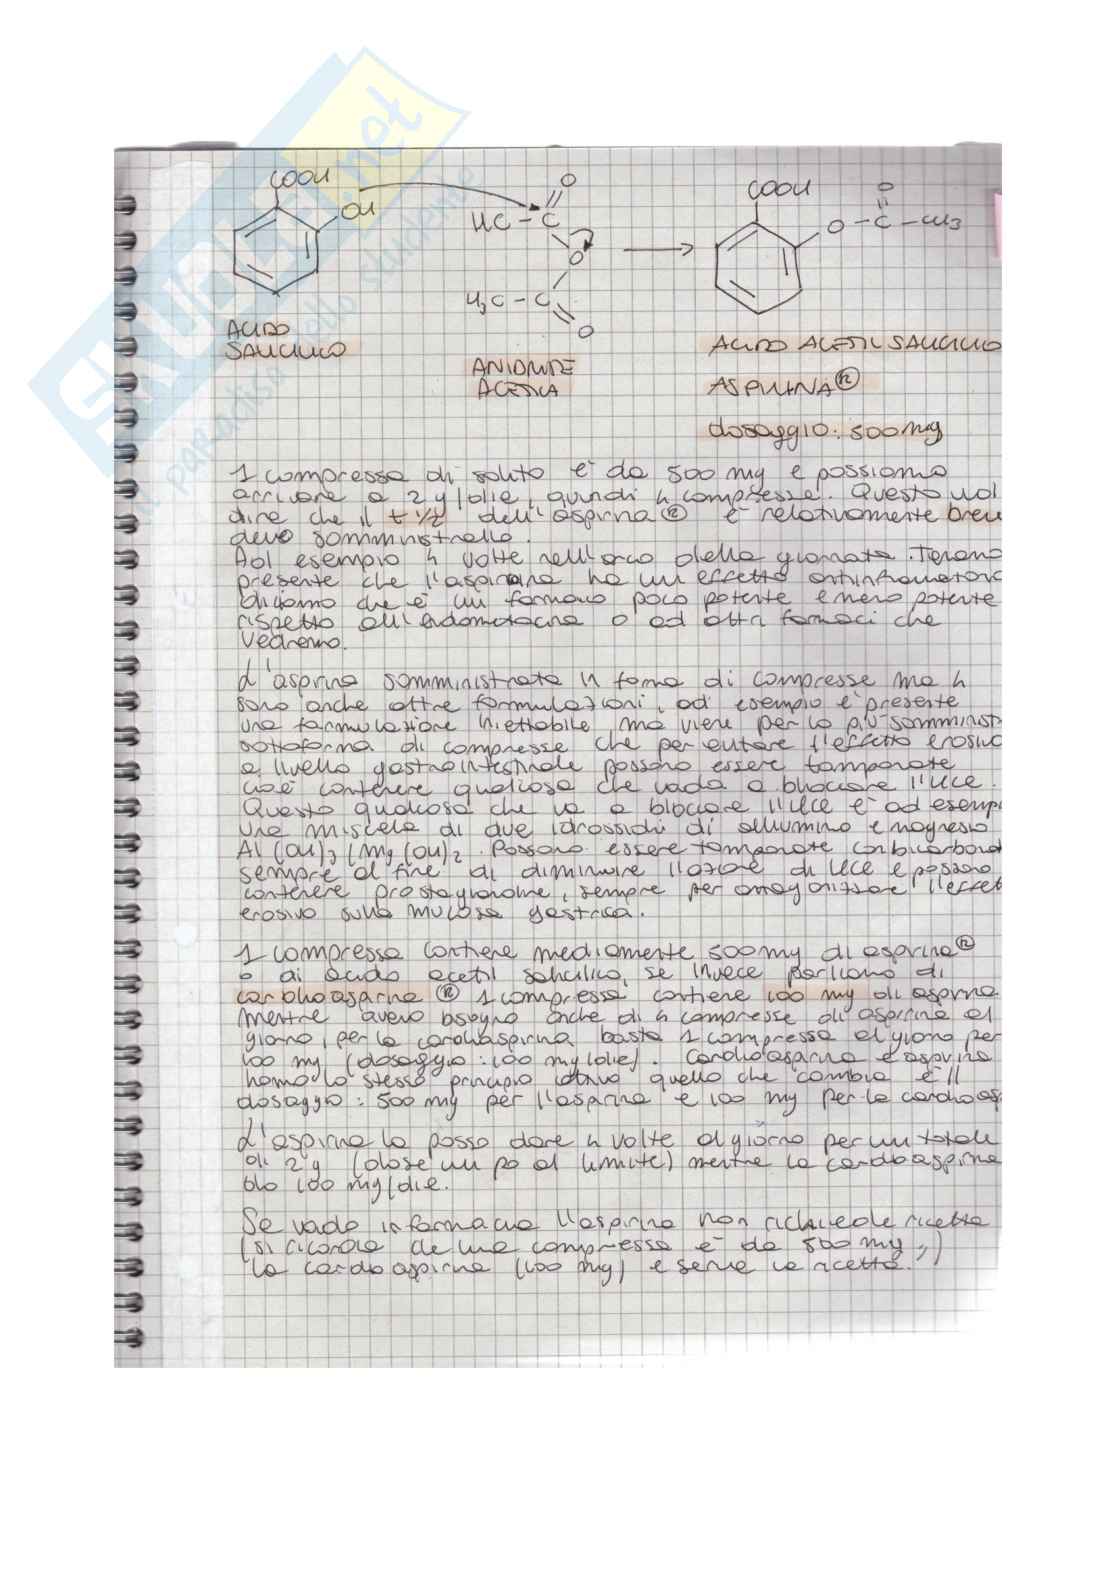 SKUOLA.net
il paradiso dello studente
COOH
OH
O
HC - C
O
H3C - C
O
COOH
O - C - CH3
O
ACIDO
SALICILICO
ANIDRIDE
ACETICA
ACIDO ACETIL SALICILICO
ASPIRINA®
dosaggio: 500 mg
1 compressa di solito è da 500 mg e possiamo
arrivare a 2 g/die, quindi 4 compresse. Questo vuol
dire che il t 1/2 dell'aspirina® è relativamente breve
devo somministrarlo.
Ad esempio 4 volte nell'arco della giornata. Teniamo
presente che l'aspirina ha un effetto antinfiammatorio
diciamo che è un farmaco poco potente e meno potente
rispetto all'indometacina o ad altri farmaci che
vedremo.
L'aspirina somministrata in forma di compresse ma ci
sono anche altre formulazioni, ad esempio è presente
una formulazione iniettabile ma viene per lo più somminist
sottoforma di compresse che per evitare l'effetto erosivo
a livello gastrointestinale possono essere tamponate
cioè contenere qualcosa che vada a bloccare l'ulce.
Questo qualcosa che va a bloccare l'ulce è ad esempi
una miscela di due idrossidi di alluminio e magnesio
Al(OH)3/Mg(OH)2. Possono essere tamponate con bicarbonat
sempre al fine di diminuire l'azione di ulce e possono
contenere prostaglandine, sempre per antagonizzare l'effet
erosivo sulla mucosa gastrica.
1 compressa contiene mediamente 500 mg di aspirina®
o di acido acetil salicilico, se invece parliamo di
cardioaspirina® 1 compressa contiene 100 mg di aspirina.
Mentre avevo bisogno anche di 4 compresse di aspirina al
giorno, per la cardiaspirina basta 1 compressa al giorno per
100 mg (dosaggio: 100 mg/die). Cardioaspirina e aspirina
hanno lo stesso principio attivo quello che cambia è il
dosaggio: 500 mg per l'aspirina e 100 mg per la cardioas
L'aspirina la posso dare 4 volte al giorno per un totale
di 2 g (dose un po al limite) mentre la cardioaspirina
do 100 mg/die.
Se vado in farmacia l'aspirina non richiede ricetta
(si ricorda che una compressa è da 500 mg,)
la cardioaspirina (100 mg) e serve la ricetta.